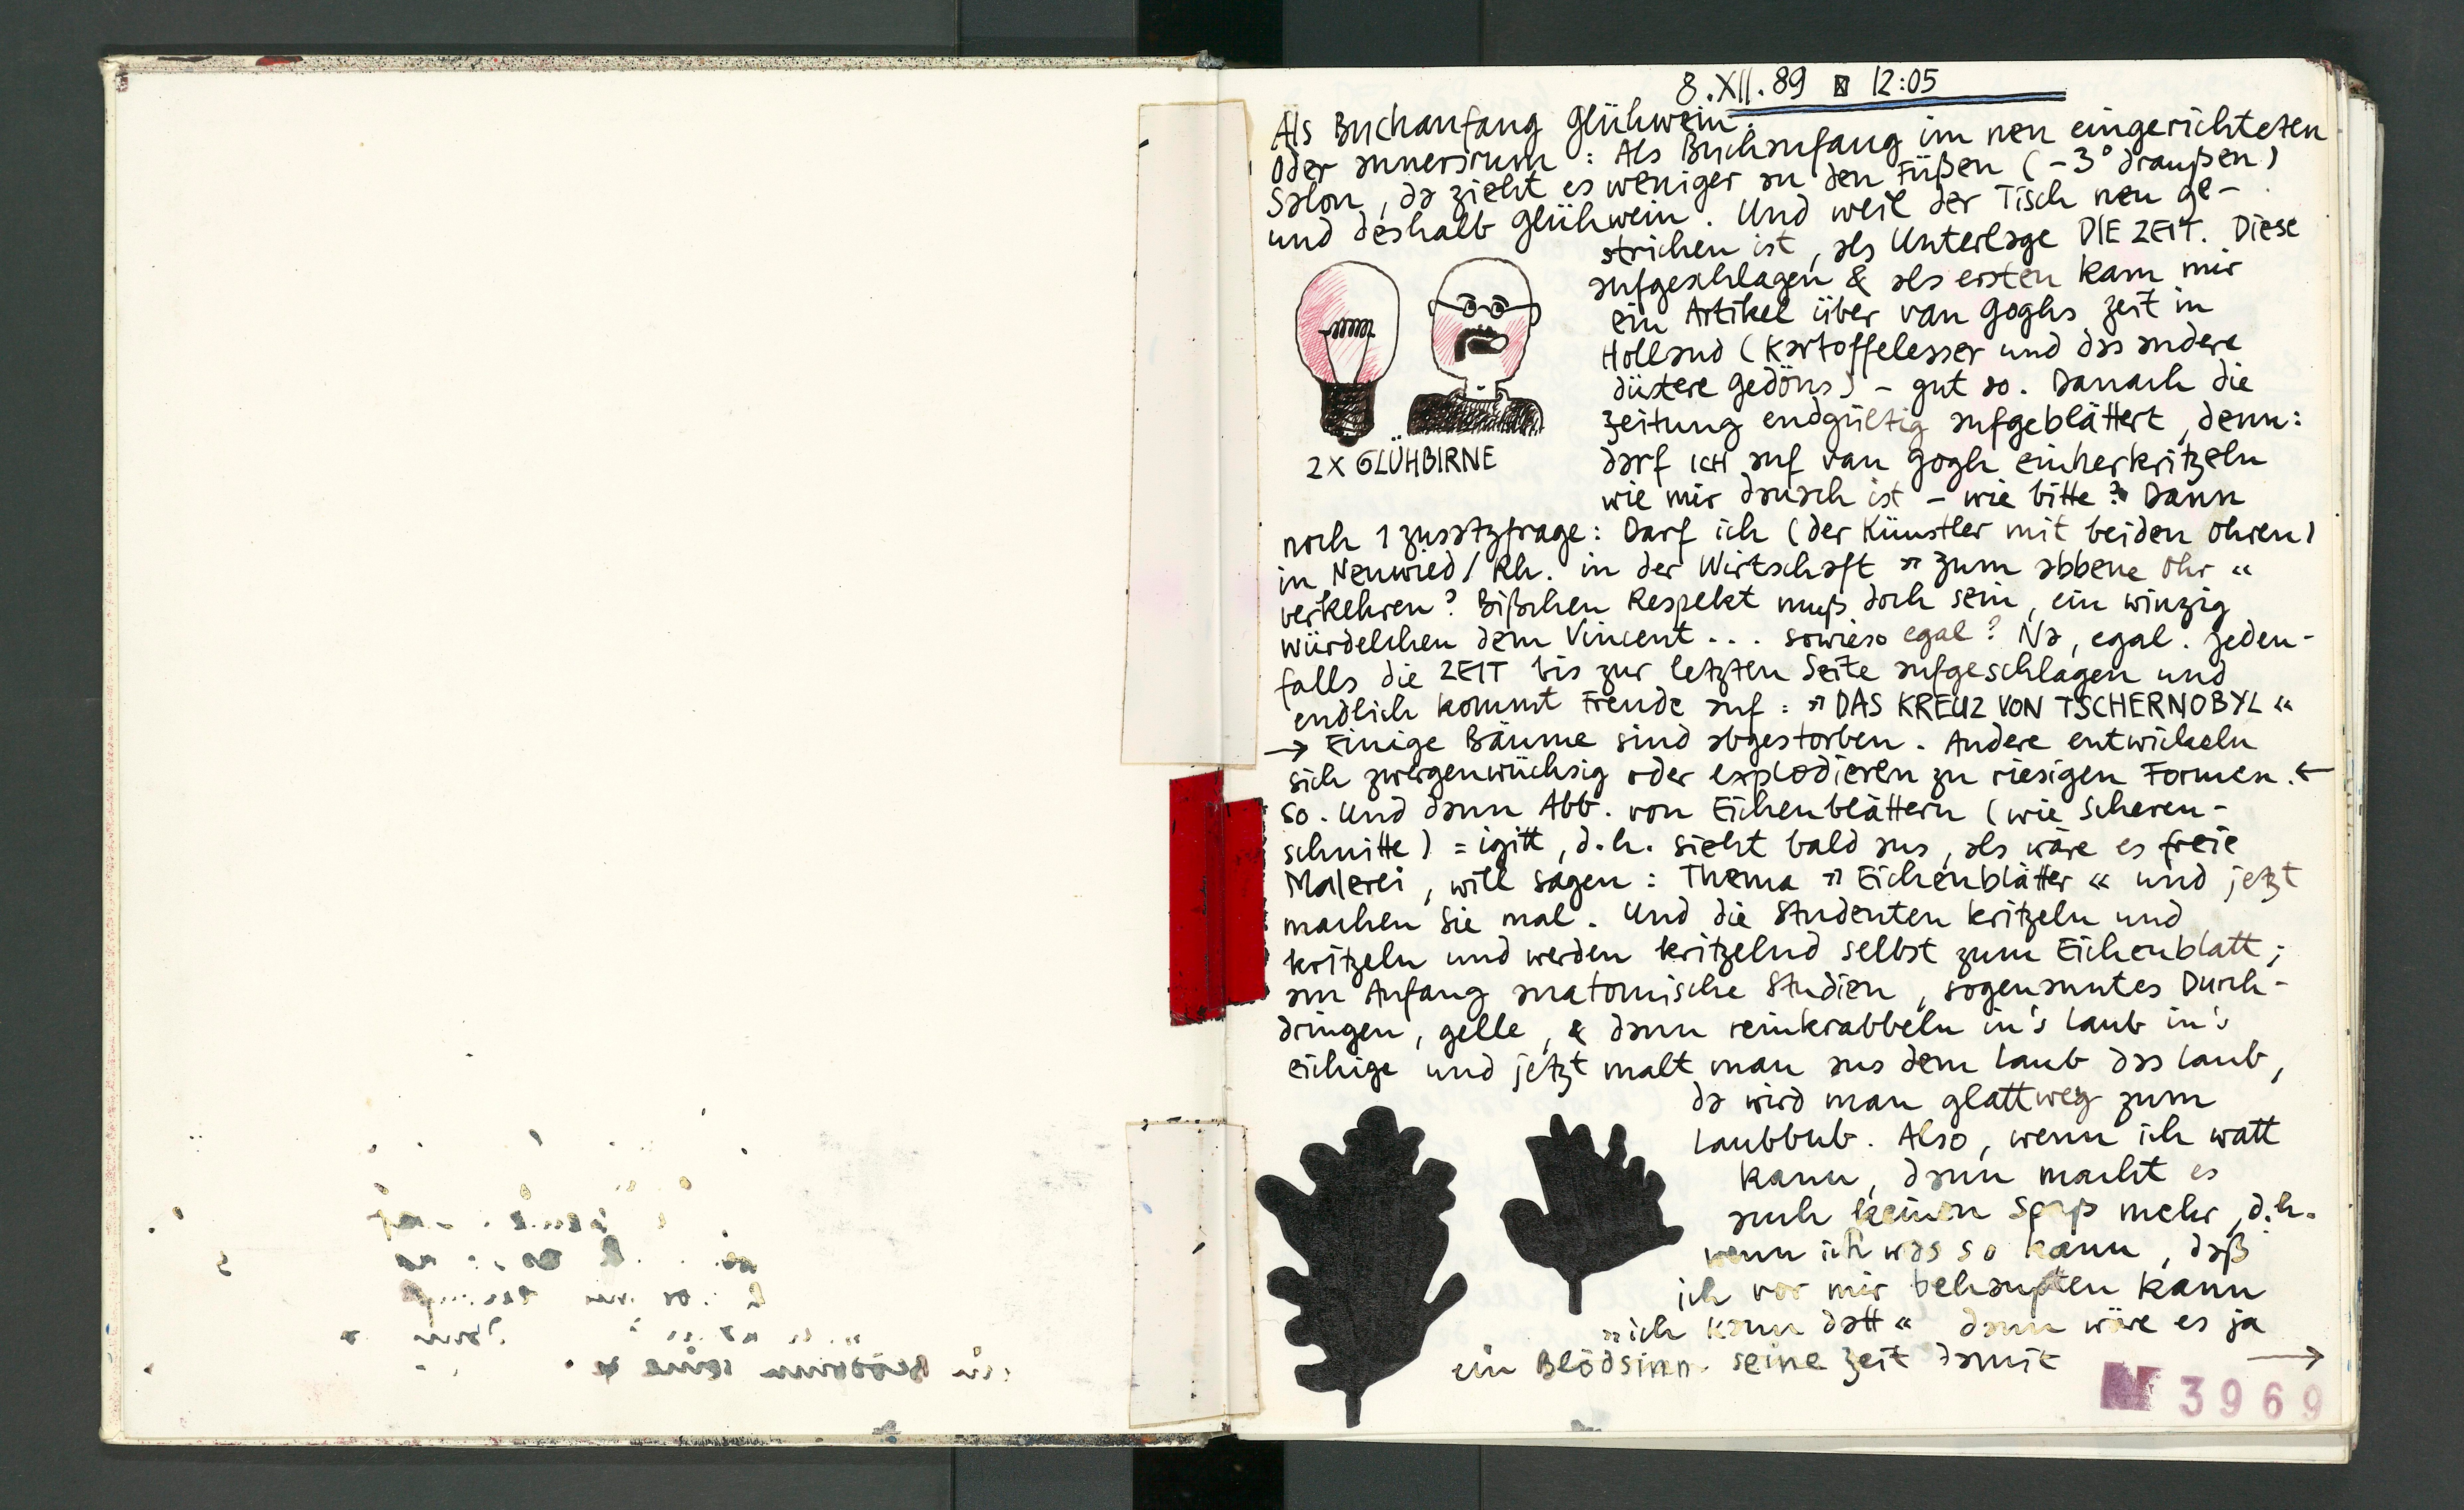 8.XII.89 12:05
Als Buchanfang Glühwein.
Oder annersrum: Als Buchanfang im neu eingerichteten
Salon, da zieht es weniger an den Füßen (-3° draußen)
und deshalb Glühwein. Und weil der Tisch neu ge-
strichen ist, als Unterlage DIE ZEIT. Diese
aufgeschlagen & als ersten kam mir
ein Artikel über van Goghs Zeit in
Holland (Kartoffelesser und das andere
düstere Gedöns) - gut so. Danach die
Zeitung endgültig aufgeblättert, denn:
darf ICH auf van Gogh einherkritzeln
wie mir danach ist - wie bitte? Dann
2X GLÜHBIRNE
noch 1 Zusatzfrage: Darf ich (der Künstler mit beiden Ohren)
in Neuwied/Rh. in der Wirtschaft »Zum abbene Ohr«
verkehren? Bißchen Respekt muß doch sein, ein winzig
würdelchen dem Vincent... sowieso egal? Na, egal. Jeden-
falls die ZEIT bis zur letzten Seite aufgeschlagen und
endlich kommt Freude auf: »DAS KREUZ VON TSCHERNOBYL«
→ Einige Bäume sind abgestorben. Andere entwickeln
sich zwergenwüchsig oder explodieren zu riesigen Formen. ←
So. Und dann Abb. von Eichenblättern (wie Scheren-
schnitte) = igitt, d.h. sieht bald aus, als wäre es freie
Malerei, will sagen: Thema »Eichenblätter« und jetzt
machen Sie mal. Und die Studenten kritzeln und
kritzeln und werden kritzelnd selbst zum Eichenblatt;
am Anfang anatomische Studien, sogenanntes Durch-
dringen, gelle, & dann reinkrabbeln in's Laub in's
eichige und jetzt malt man aus dem Laub das Laub,
da wird man glattweg zum
Laubbub. Also, wenn ich watt
kann, dann macht es
auch keinen Spaß mehr, d.h.
wenn ich was so kann, daß
ich vor mir behaupten kann
»ich kann datt« dann wäre es ja
ein Blödsinn seine Zeit damit →
3969